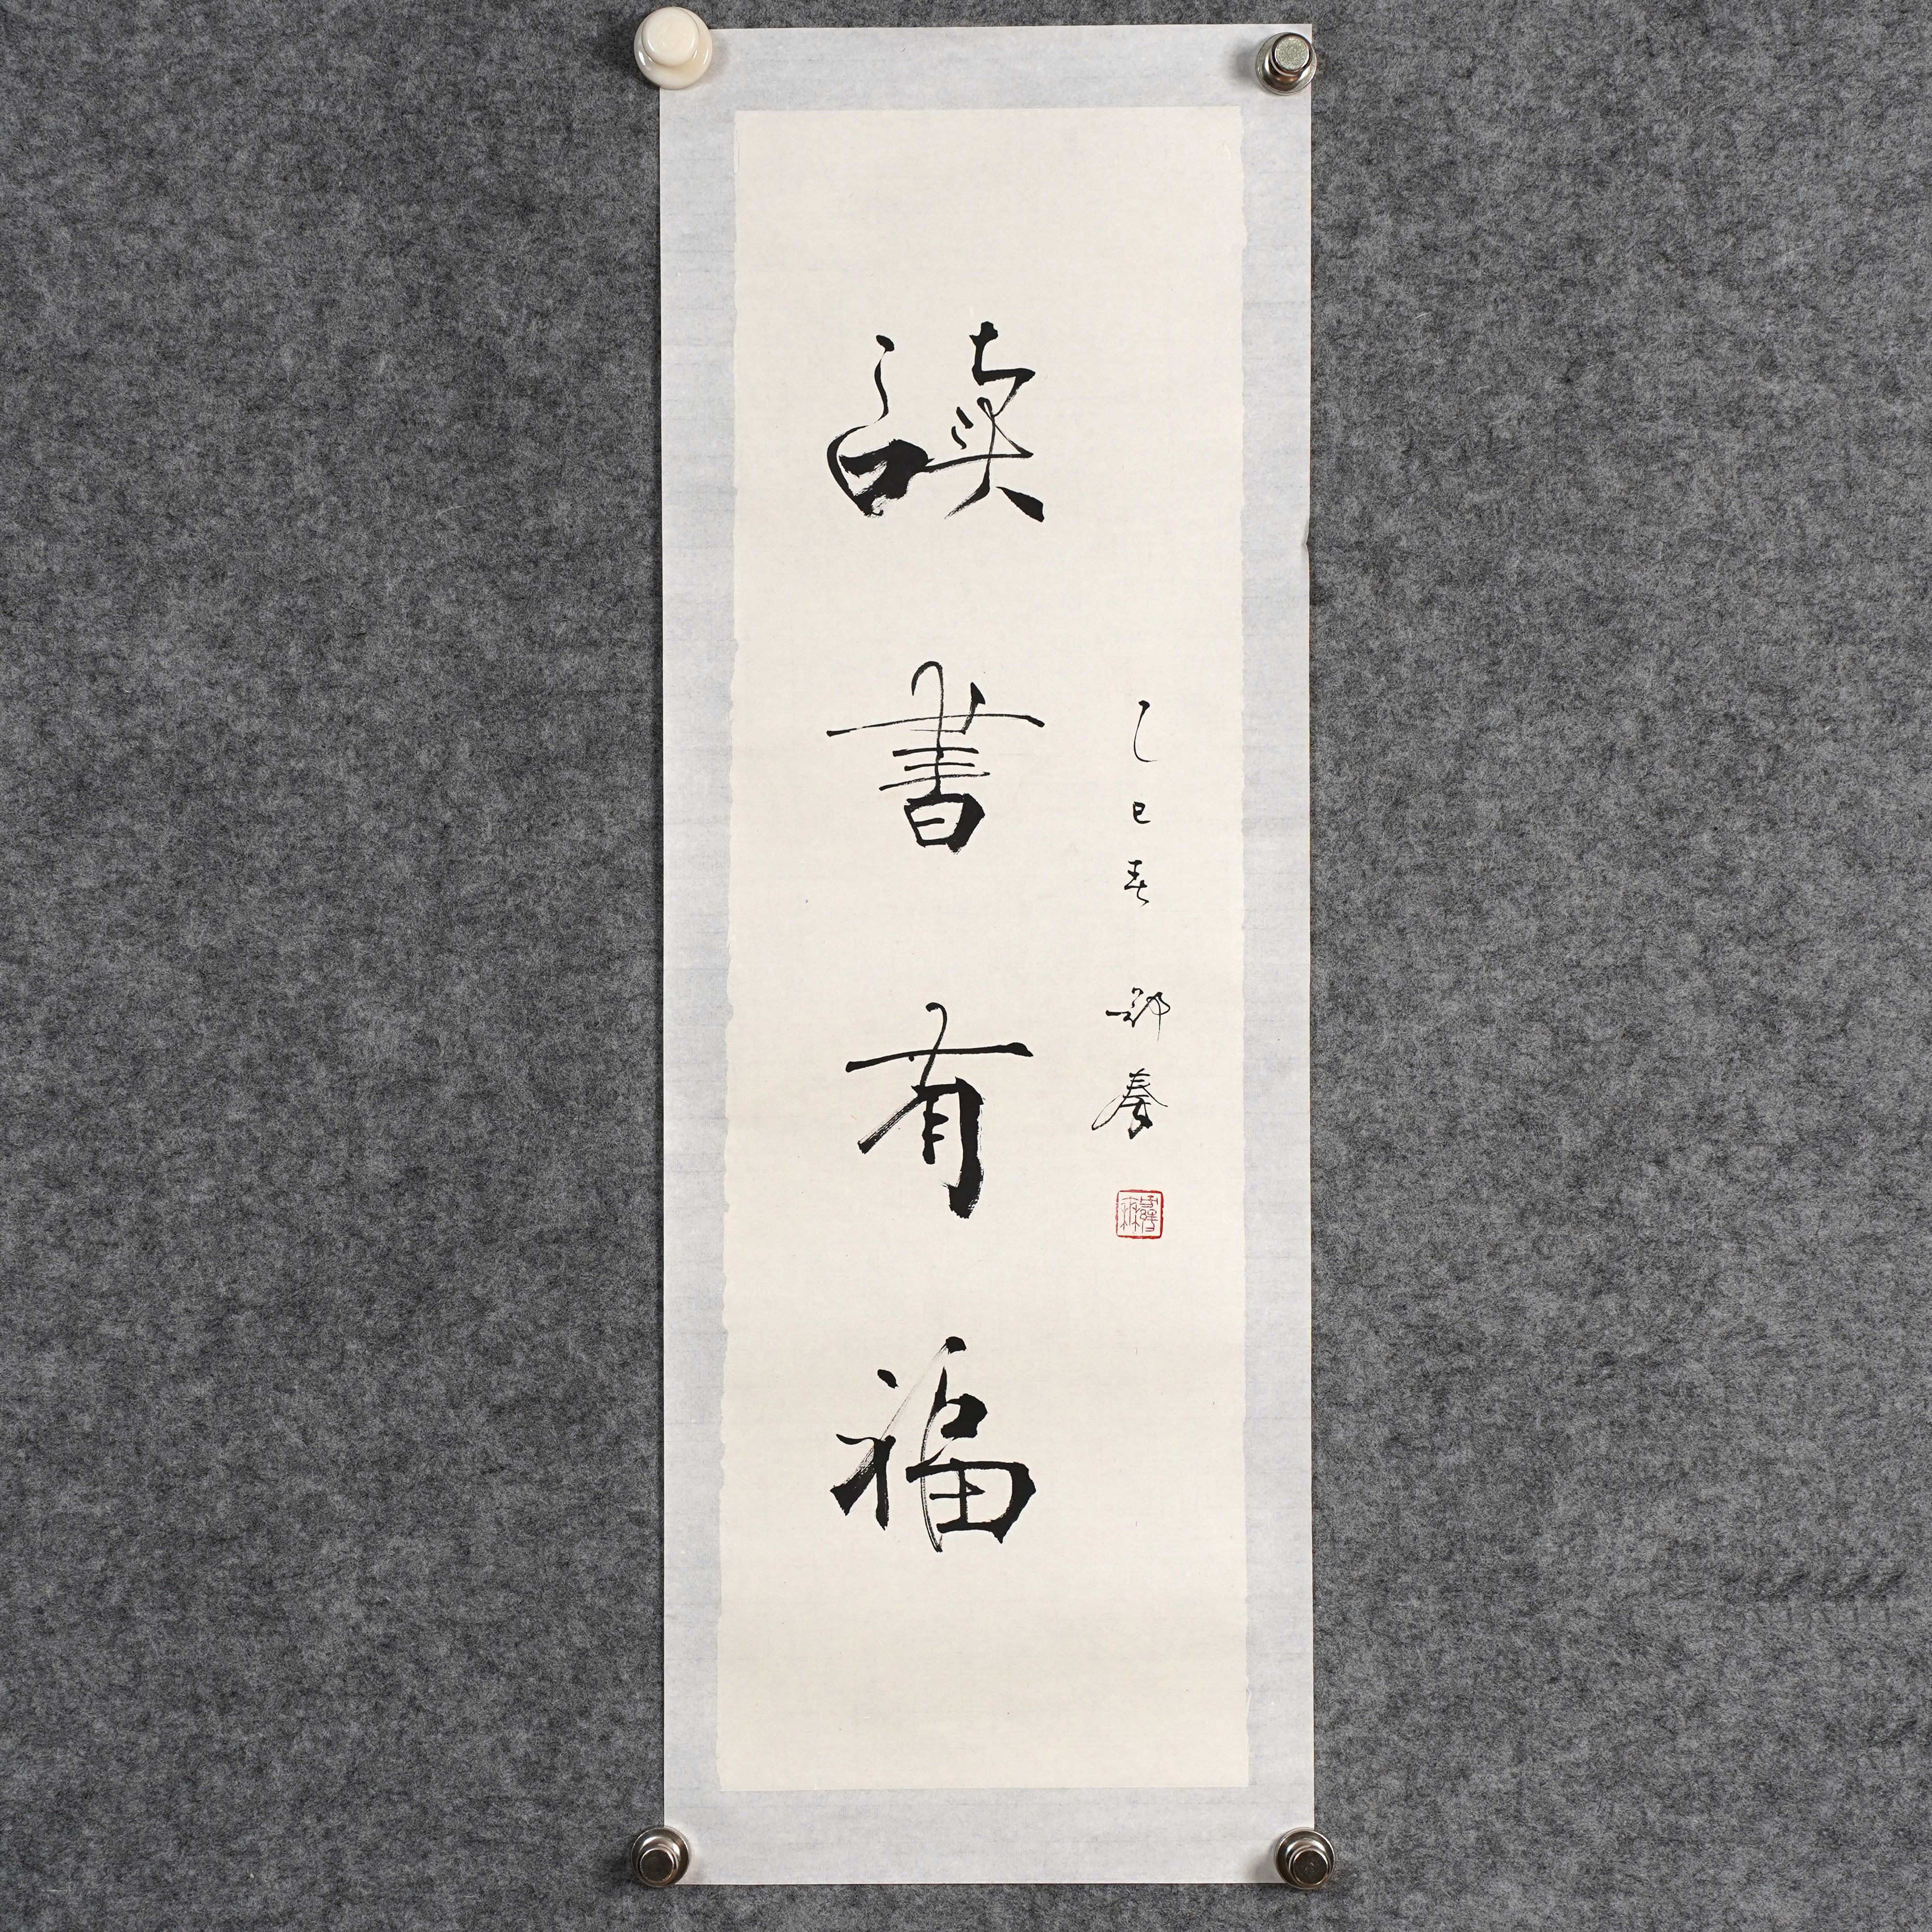 讀書有福
乙巳春